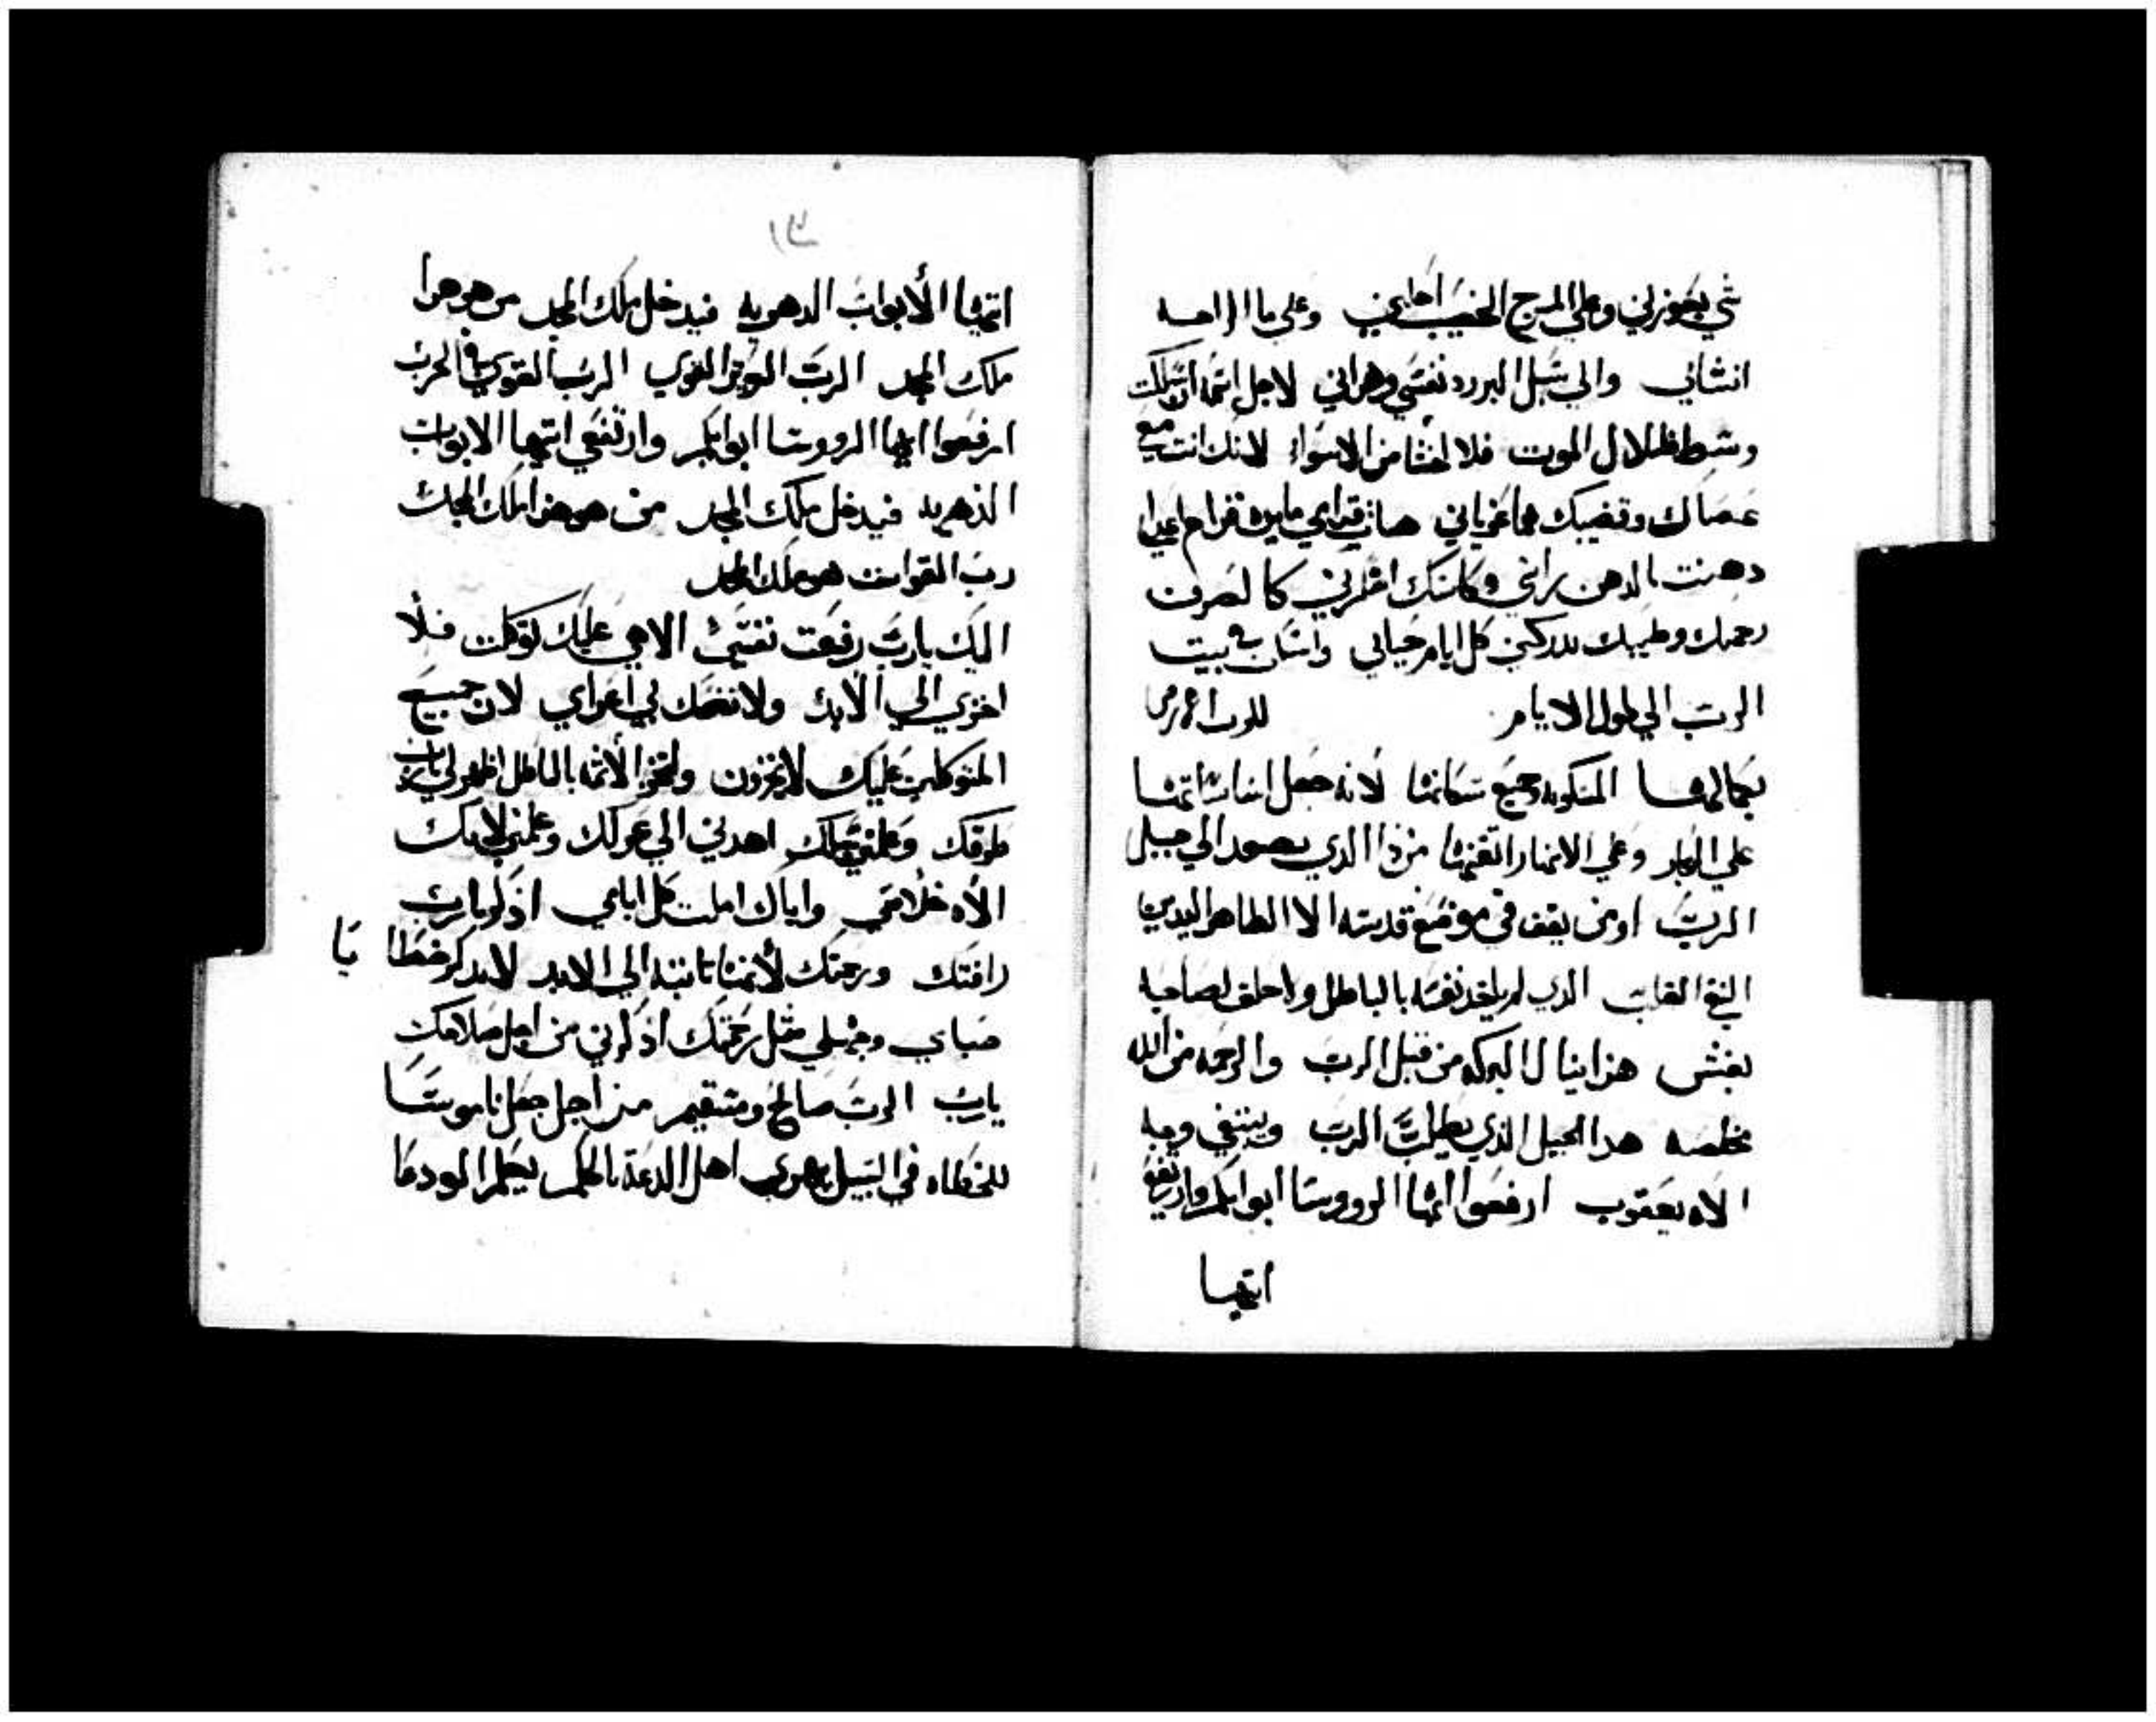 شي يعوزني وعلي المرج الخصيب احلني وعلي ما الراحه
انشاني والي سبل البر رد نفسي وهداني لاجل اسمه ان سلكت
وسط ظلال الموت فلا اخشا من الاسواء لانك انت معي
عصاك وقضيبك هما عزياني هيات قدامي مايده قدام اعدا
دهنت بالدهن راسي وكاسك اسكرني كالصرف
رحمتك وطيبك تدركني كل ايام حياتي واسكن في بيت
الرب الي طول الايام للرب الارض
بكمالها المسكونه وجميع سكانها لانه جعل اساساتها
علي البحار وعلي الانهار اتقنها من ذا الذي يصعد الي جبل
الرب او من يقف في موضع قدسه الا الطاهر اليدين
النقي القلب الدي لم ياخد نفسه بالباطل ولا حلف لصاحبه
بغش هذا ينال البركه من قبل الرب والرحمه من الله
مخلصه هدا الجيل الذي يطلب الرب ويبتغي وجه
الاه يعقوب ارفعوا ايها الرووسا ابوابكم وارتفعي
ايتها
ايتها الأبواب الدهريه فيدخل ملك المجد من هو هدا
ملك المجد الرب العزيز القوي الرب القوي في الحرب
ارفعوا ايها الرووسا ابوابكم وارتفعي ايتها الابواب
الدهريه فيدخل ملك المجد من هو هذا ملك المجد
رب القوات هو ملك المجد
اليك يارب رفعت نفسي الاهي عليك توكلت فلا
اخزي الي الابد ولا تضحك بي اعداي لان جميع
المتوكلين عليك لا يخزون وليخز الأثمه بالباطل اظهر لي يارب
طرقك وعلمني سبلك اهدني الي عدلك وعلمني لانك
الاه خلاصي واياك املت كل ايامي اذكر يا رب
رافتك ورحمتك لأنها تابته الي الابد لا تدكر خطايا
صباي وجهلي مثل رحمتك اذكرني من اجل صلاحك
يارب الرب صالح ومستقيم من اجل جعل ناموسا
للخطاه في السبيل يهدي اهل الدعة بالحكم يعلم الودعا